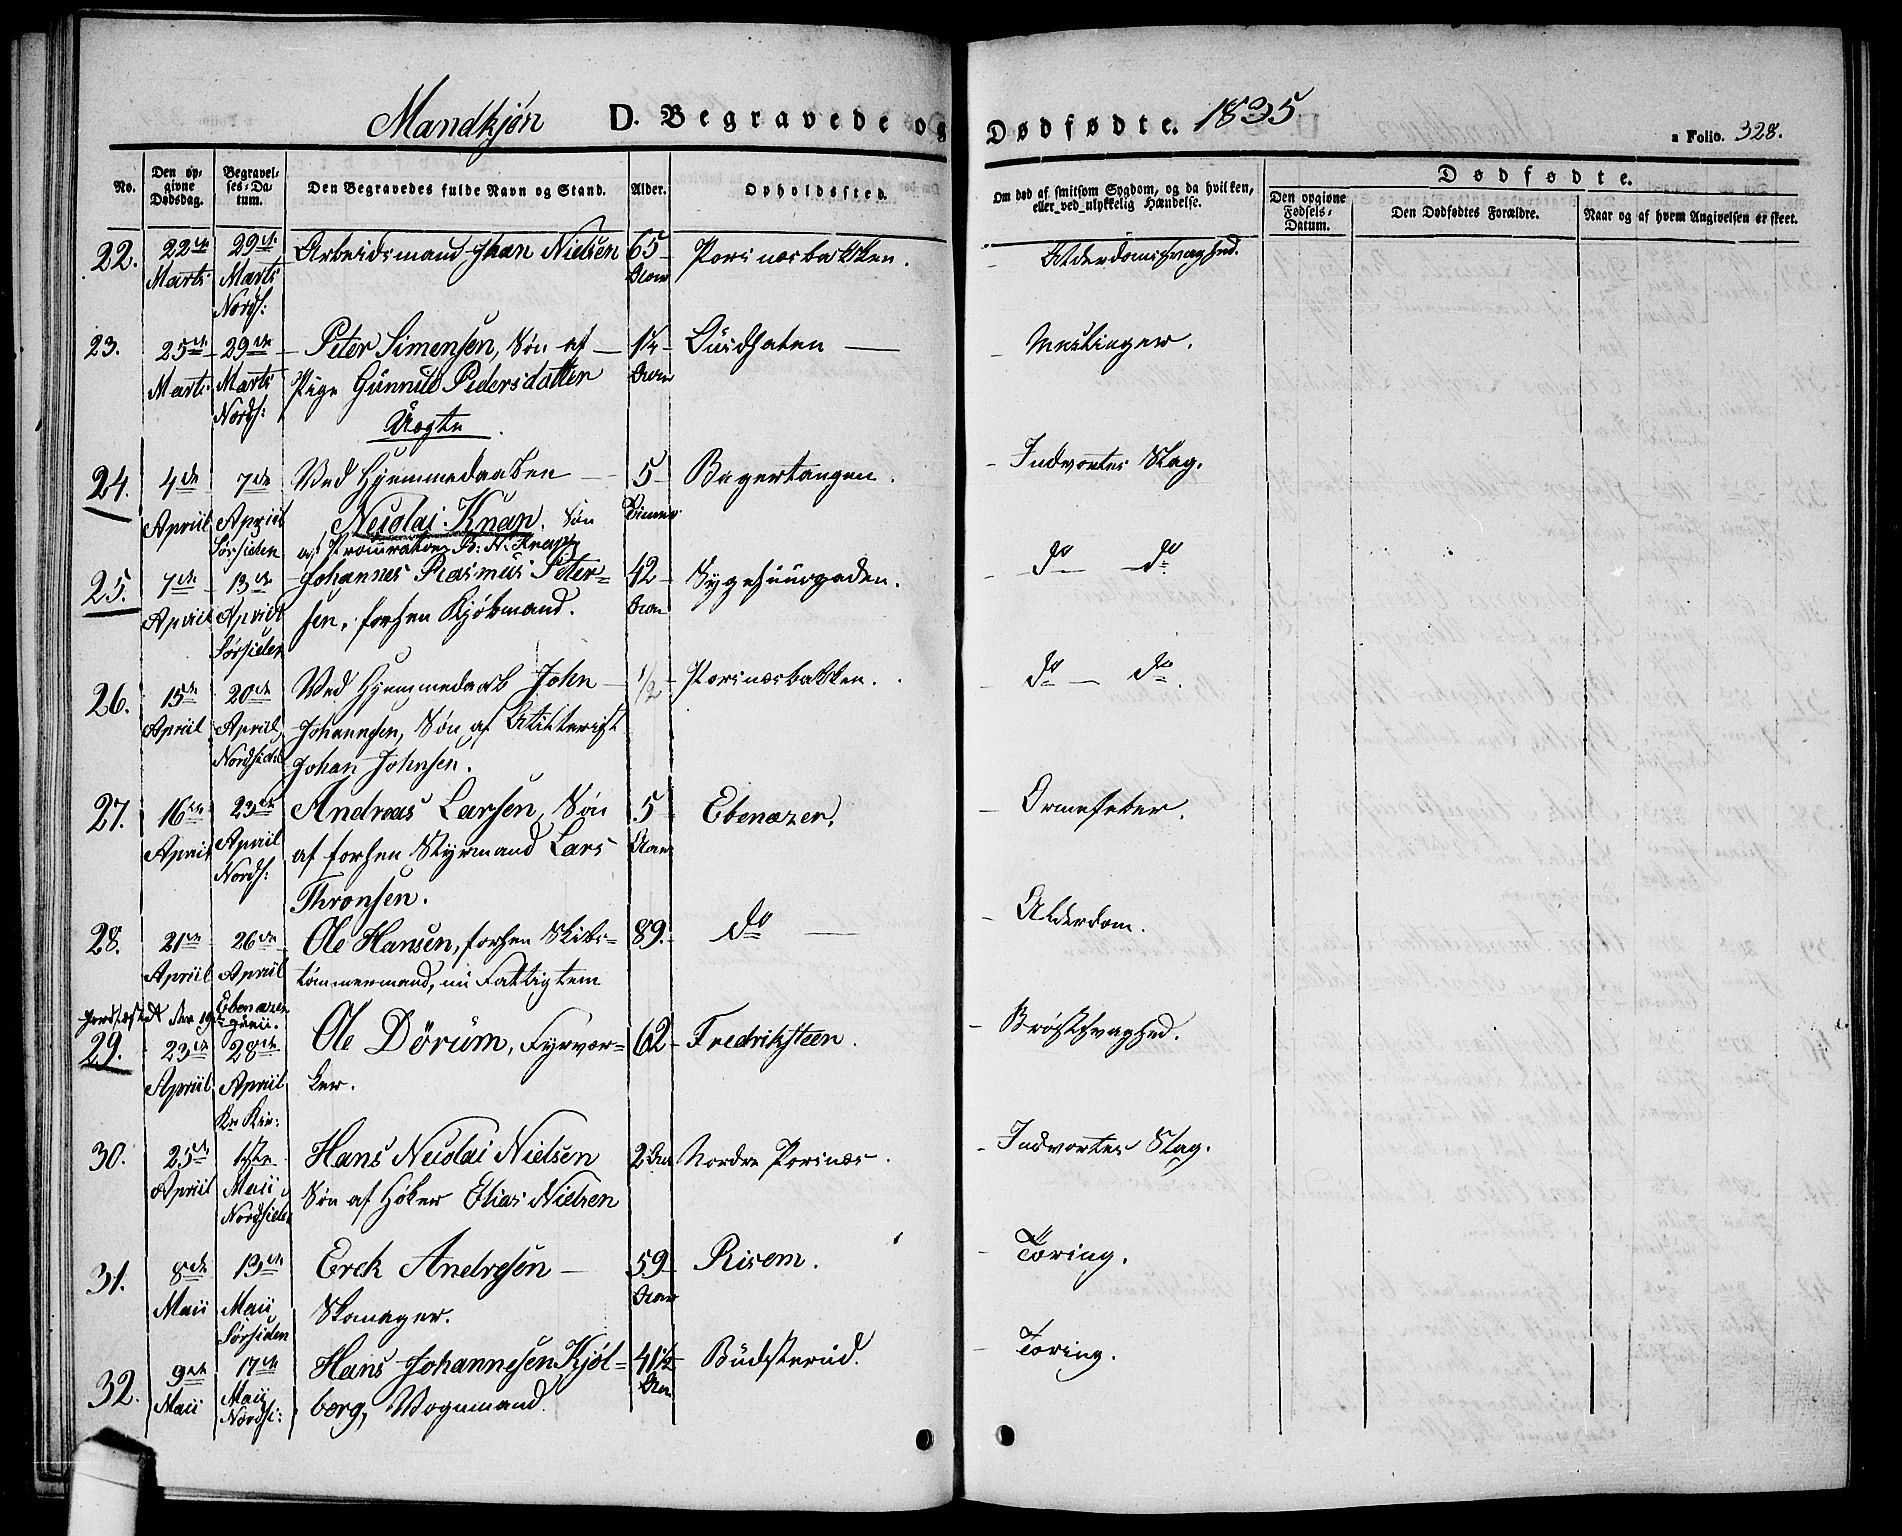 Mandkjøn D. Begravede og Dødfødte. 1835
a Folio. 328.
No.
Den opgivne Dødsdag.
Begravelses-Datum.
Den Begravedes fulde Navn og Stand.
Alder.
Opholdssted.
Om død af smitsom Sygdom, og da hvilken, eller ved ulykkelig Hændelse.
Dødfødte.
Den opgivne Fødsels-Datum.
Den Dødfødtes Forældre.
Naar og af hvem Angivelsen er skeet.
22. 22de 29de Arbeidsmand Johan Nielsen 65 Porsnæsbakken. Alderdomssvaghed.
Marts Marts Aar
Nords:
23. 25de 29de Peter Simensen, Søn af 1¼ Mæslinger.
Marts Marts Pige Gunnild Pedersdatter Aar
Nords: Uægte
24. 4de 7de Ved Hjemmedaaben 5 Bagertangen. Indvortes Slag.
April April Nicolai Knap. Søn Timer
Sørsiden af Procurator B. N. Knap
25. 7de 13de Johannes Rasmus Peter- 42 Sygehuusgaden. do do
April April sen, forhen Kjøbmand. Aar
Sørsiden
26. 15de 20de Ved Hjemmedaab John 1/2 Porsnæsbakken. do do
April April Johannsen, Søn af Artillerist
Nordsiden Johan Johnsen.
27. 16de 23de Andreas Larsen, Søn 5 Ebenæzer. Ormefeber.
April April af forhen Styrmand Lars Aar
Nords: Thronsen.
28. 21de 26de Ole Hansen, forhen Skibs- 89. do Alderdom.
April April tømmermand, nu Fattiglem
Ebenæzer
29. 23de 28de Ole Dörum, Fyrvær- 62 Fredriksteen. Brøstsvaghed.
April April ker.
30. 25de 1ste Hans Nicolai Nielsen 2 Aar Nordre Porsnæs. Indvortes Slag.
April Maii Søn af Høker Elias Nielsen
Nordsiden
31. 8de 13de Erck Andresen 59 Risom. Tæring.
Maii Maii Skomager. Aar
Sørsiden
32. 9de 17de Hans Johannesen Kjøl- 41½ Büdsterud. Tæring.
Maii Maii berg, Vognmand. Aar
Nordsi: